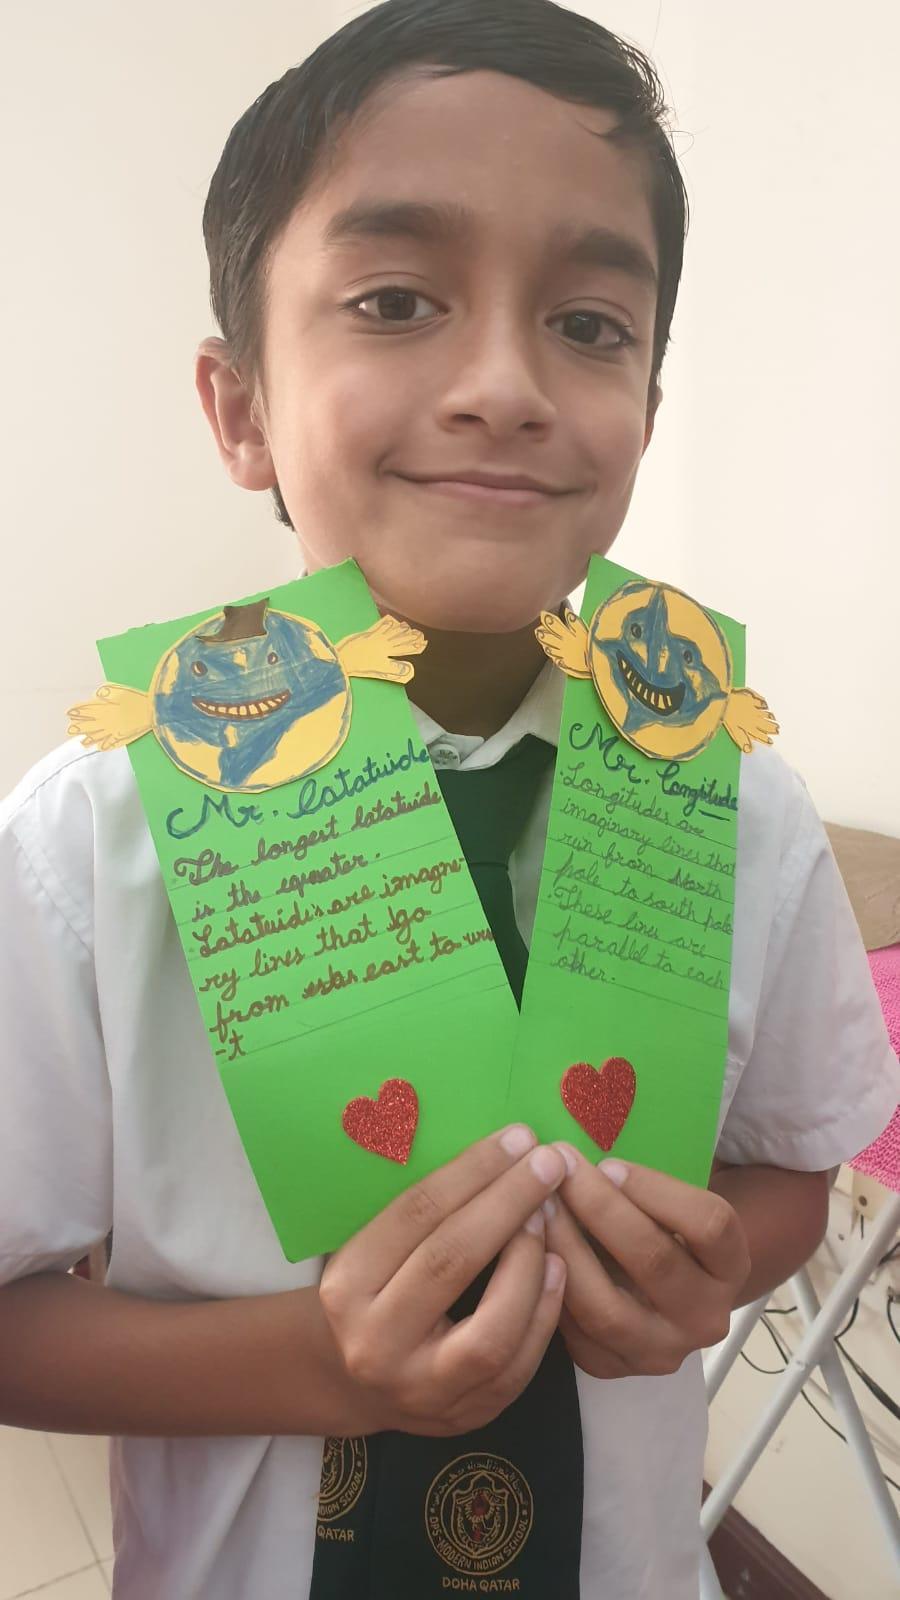 Mr. Latatuide
The longest latatuide
is the equater.
Latatuidis are imagne-
ry lines that go
from east to wes
-t
Mr. Longitude
Longitudes are
imaginary lines that
run from North
pole to south pole
These lines are
parallel to each
other.
INDIAN SCHOOL
QATAR
DPS-MODERN INDIAN SCHOOL
DOHA QATAR